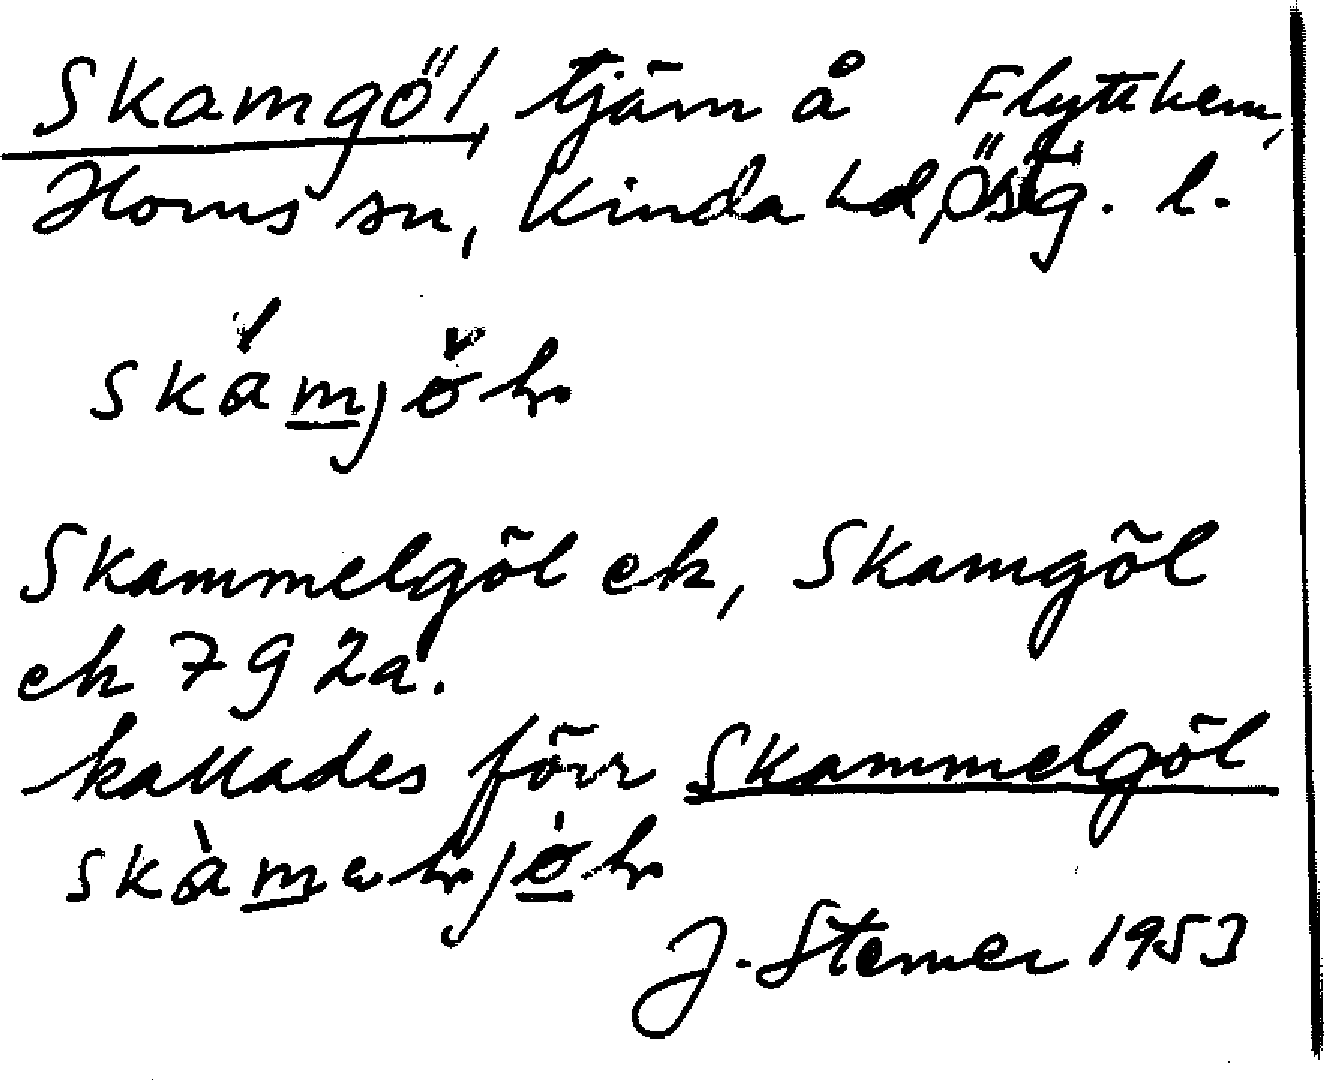 Skamgöl, tjärn å Flytthem,
Horns sn, Kinda hd, Östg. l.
skámjŏ̀ɫ
Skammelgöl ek, Skamgöl
ek 7 g 2a.
kallades förr Skammelgöl
skàm
J. Sterner 1953